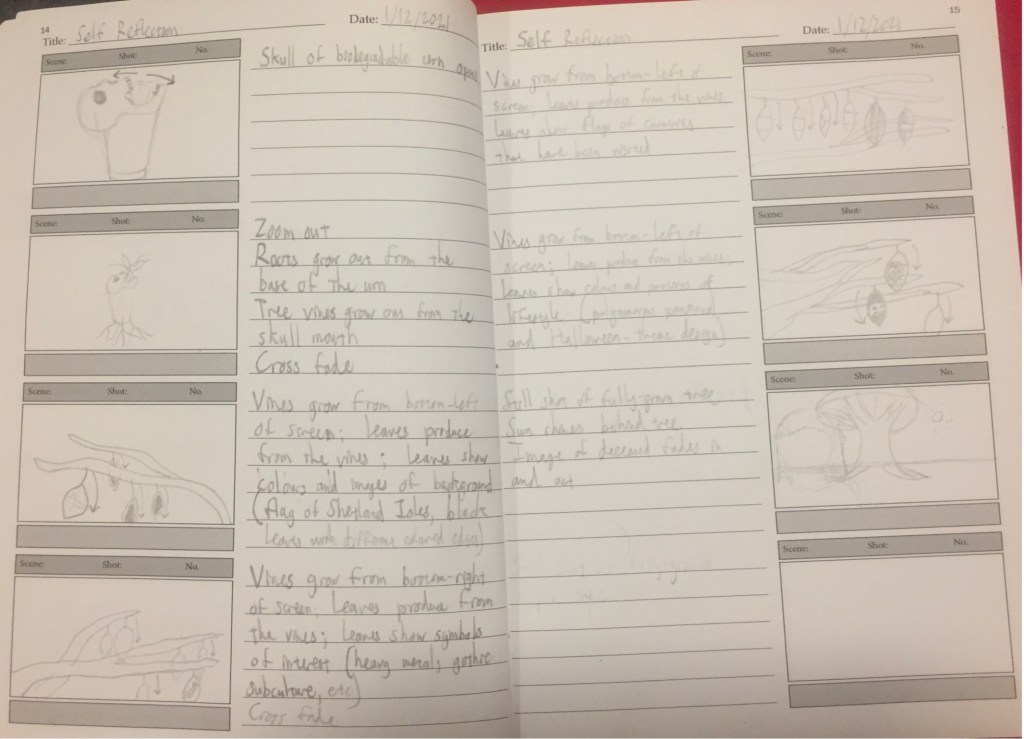 14
Title: Self Reflection
Date: 1/12/2021
Scene: Shot: No.
Skull of biodegradable urn opens
Scene: Shot: No.
Zoom out
Roots grow out from the
base of the urn
Tree vines grow out from the
skull mouth
Cross fade
Scene: Shot: No.
Vines grow from bottom-left
of screen; leaves produce
from the vines; leaves show
colours and images of background
(flag of Shetland Isles, black
leaves with different coloured clay)
Scene: Shot: No.
Vines grow from bottom-right
of screen; leaves produce from
the vines; leaves show symbols
of interest (heavy metal, gothic
subculture, etc)
Cross fade
15
Title: Self Reflection
Date: 1/12/2021
Scene: Shot: No.
Vines grow from bottom-left of
screen; leaves produce from the vines;
leaves show flags of countries
that have been visited
Scene: Shot: No.
Vines grow from bottom-left of
screen; leaves produce from the vines;
leaves show colours and patterns of
lifestyle (
and Halloween-theme design)
Scene: Shot: No.
Full shot of fully-grown tree
Sun shines behind tree
Image of deceased fades in
and out
Scene: Shot: No.